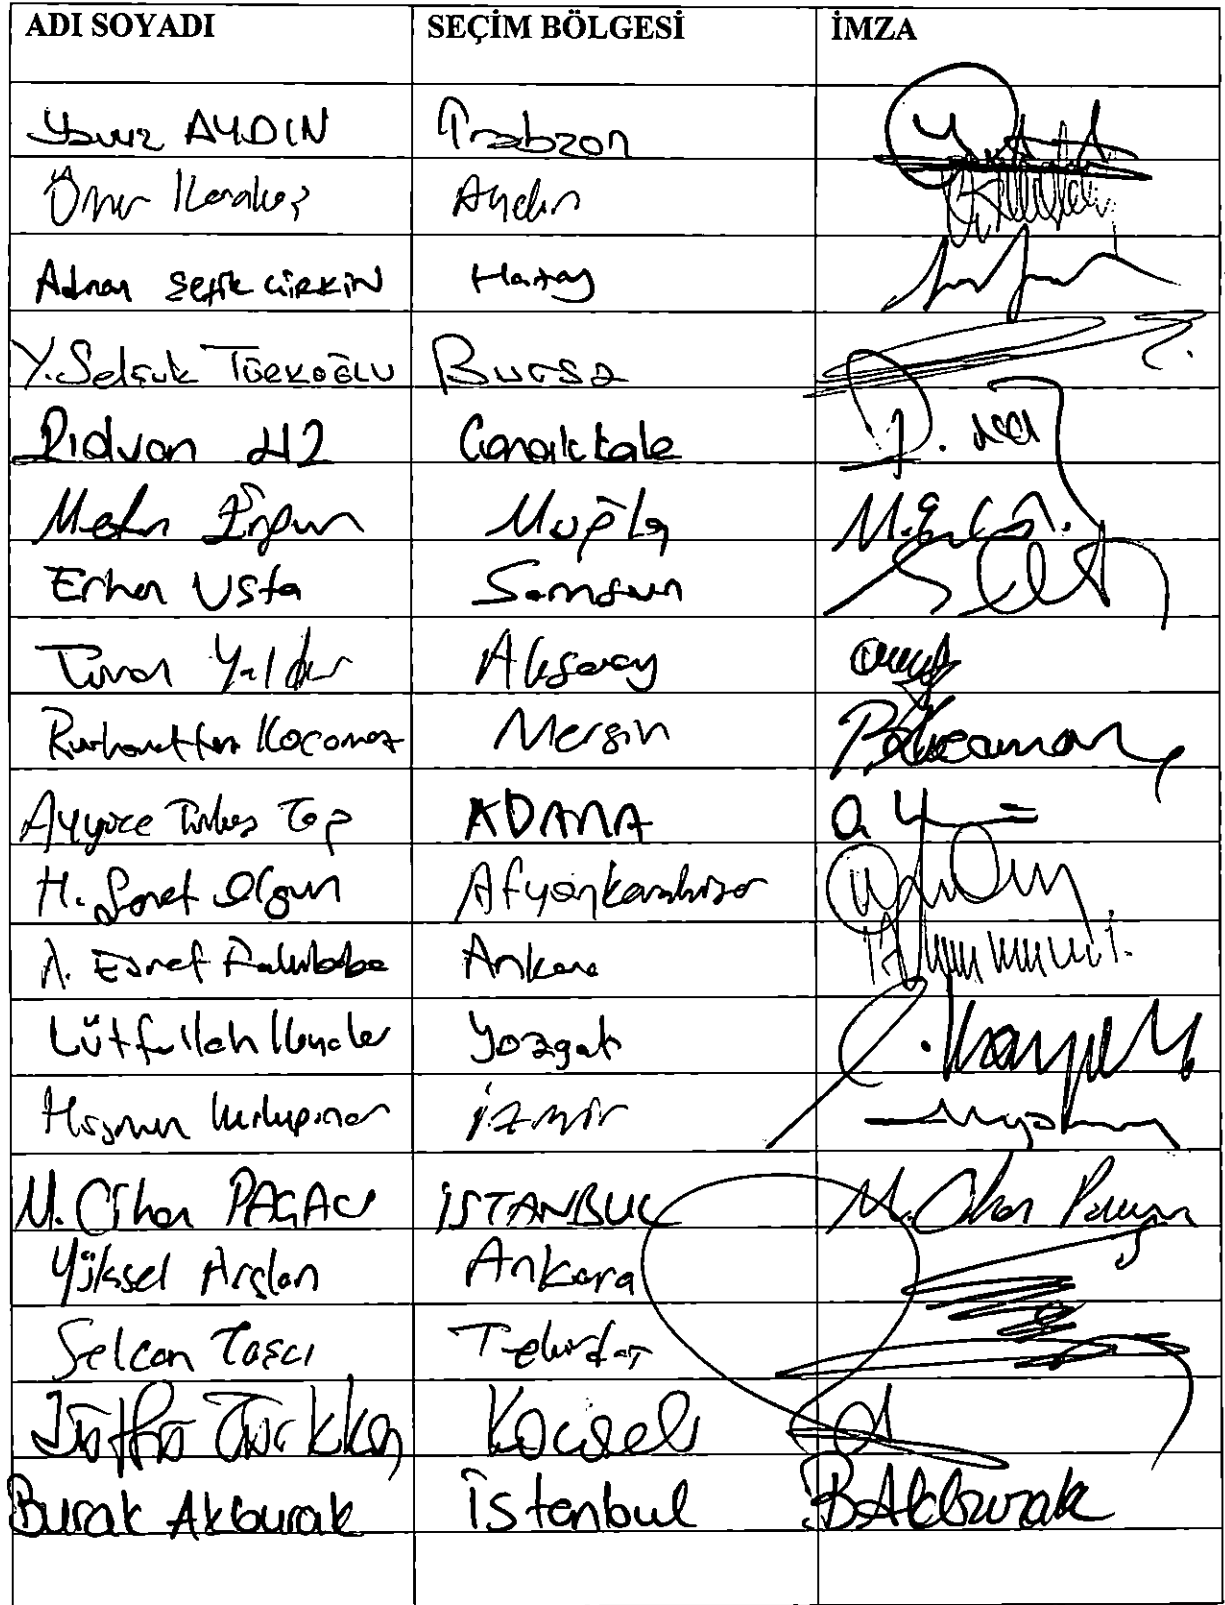 ADI SOYADI SEÇİM BÖLGESİ İMZA
Yavuz AYDIN Trabzon
Ömer Karakaş Aydın
Adnan Şefik ÇİRKİN Hatay
Y. Selçuk TÜRKOĞLU Bursa
Rıdvan UZ Çanakkale
Metin Ergun Muğla M.
Erhan Usta Samsun
Turan Yaldır Aksaray
Burhanettin Kocamaz Mersin BKocamaz
Ayyüce Türkeş Taş ADANA
H. Şeref Olgun Afyonkarahisar
A. Eşref Fakıbaba Ankara
Lütfullah Kayalar Yozgat
Hüsmen Kırkpınar İzmir
M. Cihan PAÇACI İSTANBUL M. Cihan Paçacı
Yüksel Arslan Ankara
Selcan Taşcı Tekirdağ
Lütfü Türkkan Kocaeli
Burak Akburak İstanbul BAkburak